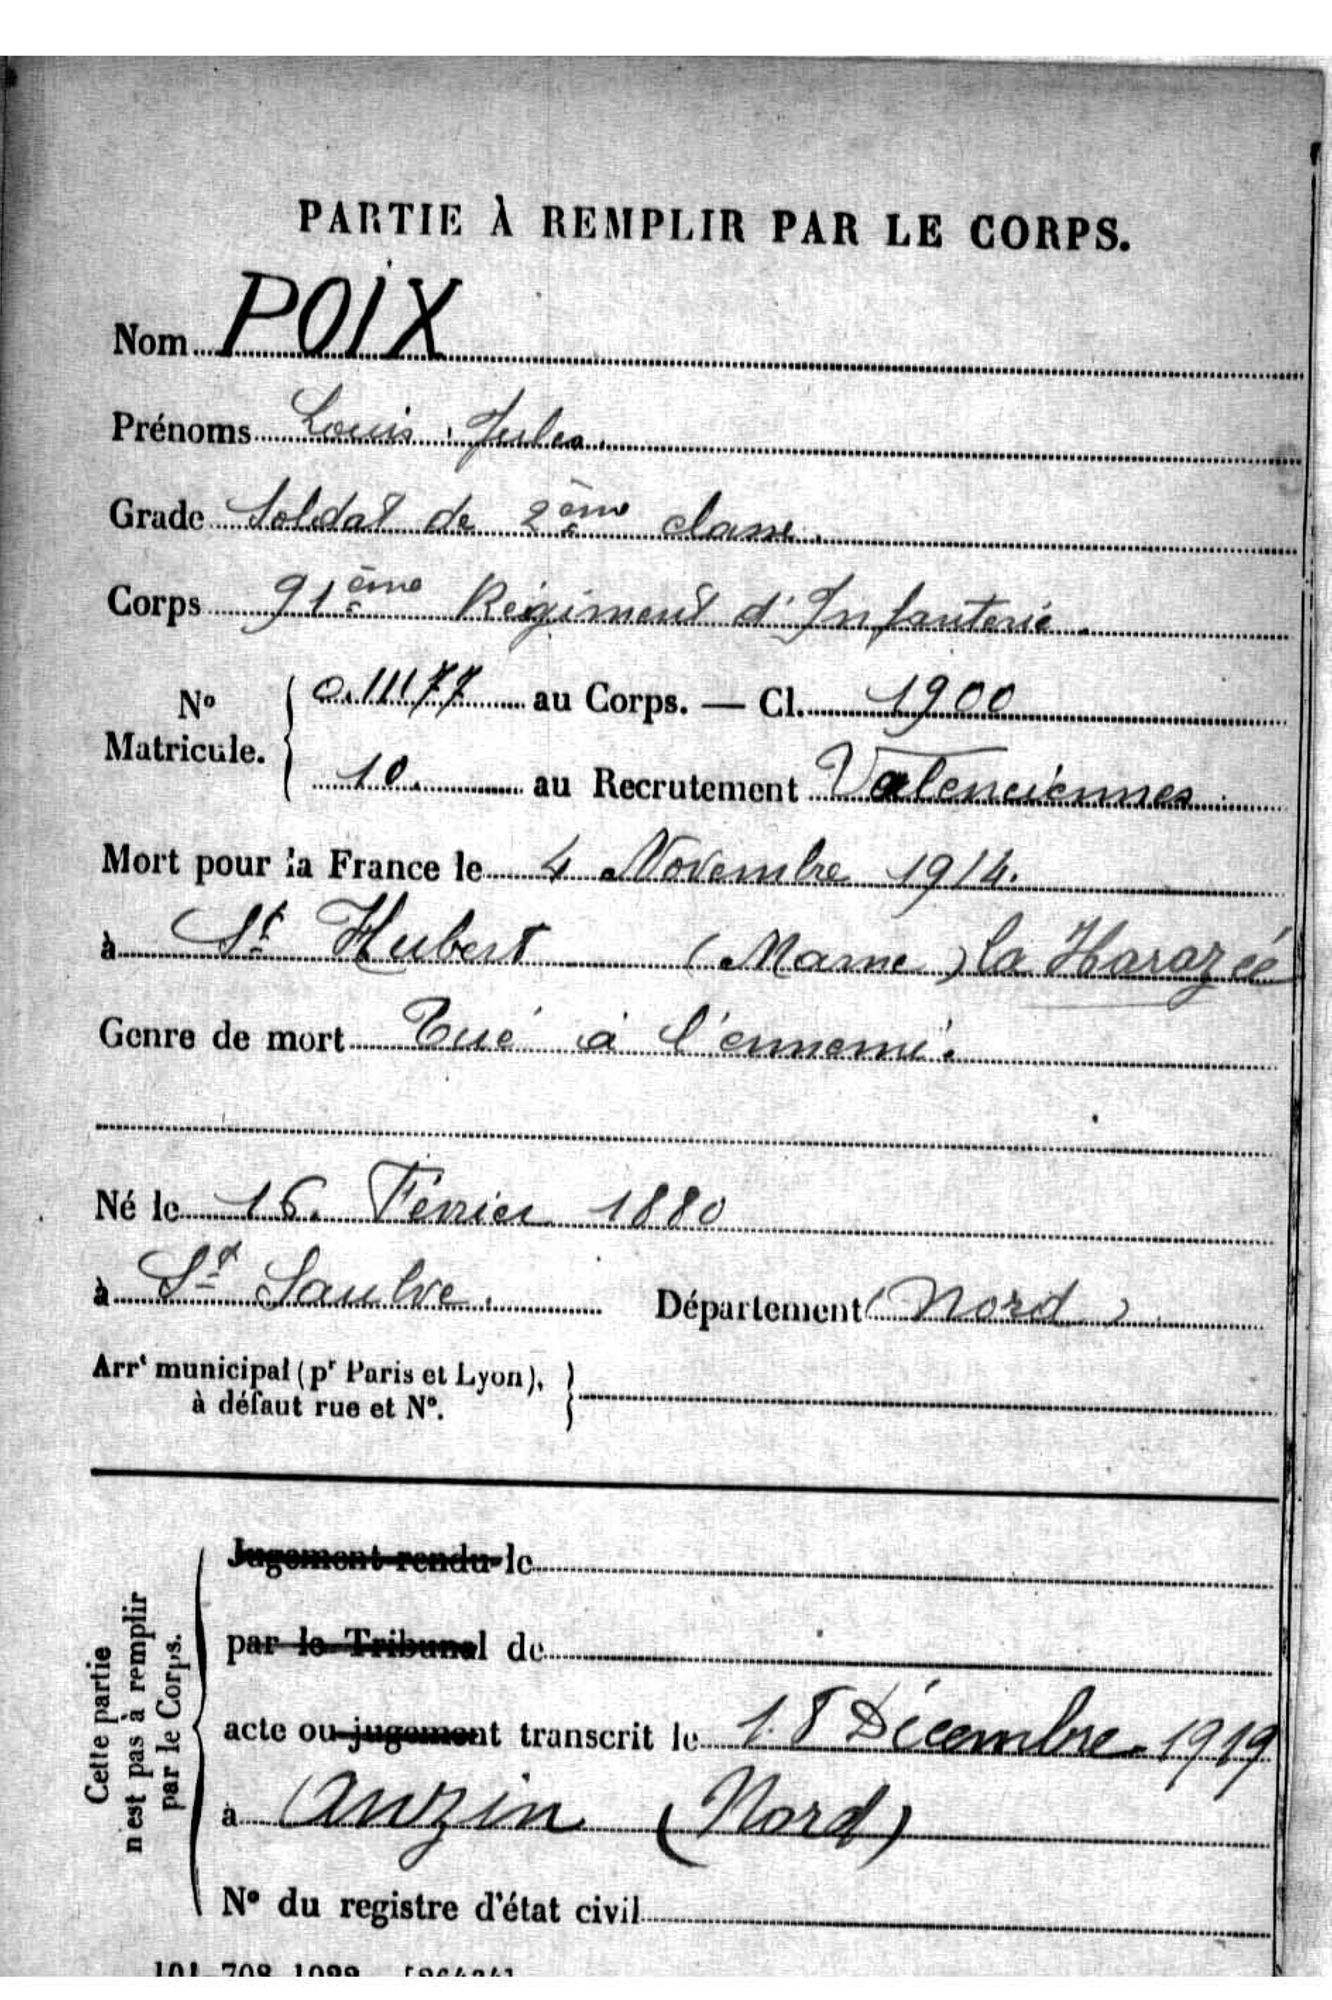 PARTIE À REMPLIR PAR LE CORPS.
Nom POIX
Prénoms Louis, Jules.
Grade Soldat de 2ème classe.
Corps 91ème Régiment d'Infanterie.
No Matricule. { 0.11177 au Corps. — Cl. 1900
10. au Recrutement Valenciennes.
Mort pour la France le 4 Novembre 1914.
à St Hubert (Marne) la Harazée
Genre de mort Tué à l'ennemi.
Né le 16. Février 1880
à St Saulve. Département (Nord).
Arrt municipal (pr Paris et Lyon),
à défaut rue et No. }
Cette partie
n'est pas à remplir
par le Corps.
Jugement rendu le
par le Tribunal de
acte ou jugement transcrit le 18 Décembre 1919
à Anzin (Nord)
No du registre d'état civil
101-708-1922.